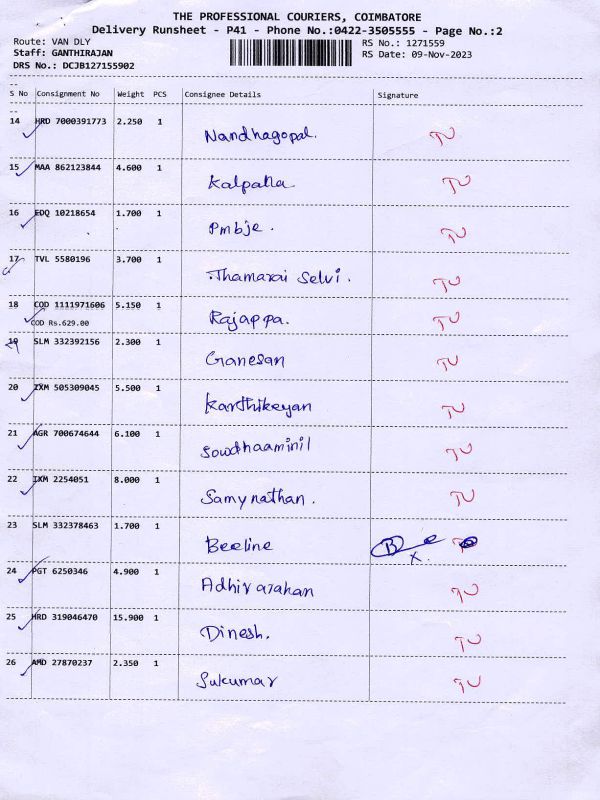 THE PROFESSIONAL COURIERS, COIMBATORE
Delivery Runsheet - P41 - Phone No.:0422-3505555 - Page No.:2
Route: VAN DLY RS No.: 1271559
Staff: GANTHIRAJAN RS Date: 09-Nov-2023
DRS No.: DCJB127155902
S No Consignment No Weight PCS Consignee Details Signature
14 HRD 7000391773 2.250 1 Nandhagopal. TU
15 MAA 862123844 4.600 1 Kalpana TU
16 EDQ 10218654 1.700 1 Pmbje. TU
17 TVL 5580196 3.700 1 Thamarai Selvi. TU
18 COD 1111971606 5.150 1 Rajappa. TU
COD Rs.629.00
19 SLM 332392156 2.300 1 Ganesan TU
20 IXM 505309045 5.500 1 Karthikeyan TU
21 AGR 700674644 6.100 1 Sowdhaaminil TU
22 IXM 2254051 8.000 1 Samynathan. TU
23 SLM 332378463 1.700 1 Beeline
24 PGT 6250346 4.900 1 Adhivarahan TU
25 HRD 319046470 15.900 1 Dinesh. TU
26 AMD 27870237 2.350 1 Sukumar TU